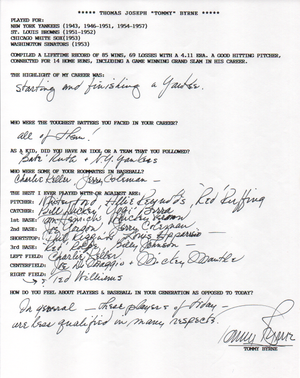 ***** THOMAS JOSEPH "TOMMY" BYRNE *****
PLAYED FOR:
NEW YORK YANKEES (1943, 1946-1951, 1954-1957)
ST. LOUIS BROWNS (1951-1952)
CHICAGO WHITE SOX(1953)
WASHINGTON SENATORS (1953)
COMPILED A LIFETIME RECORD OF 85 WINS, 69 LOSSES WITH A 4.11 ERA. A GOOD HITTING PITCHER,
CONNECTED FOR 14 HOME RUNS, INCLUDING A GAME WINNING GRAND SLAM IN HIS CAREER.
THE HIGHLIGHT OF MY CAREER WAS:
Starting and finishing a Yankee.
WHO WERE THE TOUGHEST BATTERS YOU FACED IN YOUR CAREER?
all of Them!
AS A KID, DID YOU HAVE AN IDOL OR A TEAM THAT YOU FOLLOWED?
Babe Ruth - N.Y. Yankees
WHO WERE SOME OF YOUR ROOMMATES IN BASEBALL?
Charlie Keller - Jerry Coleman -
THE BEST I EVER PLAYED WITH OR AGAINST ARE:
PITCHER: Allie Reynolds, Red Ruffing
CATCHER: Bill Dickey, Yogi Berra
1st BASE:
2nd BASE: Joe Gordon, Jerry Coleman
SHORTSTOP: Phil Rizzuto, Louis
3rd BASE: Red Rolfe, Billy Johnson -
LEFT FIELD: Charlie Keller
CENTERFIELD: Joe DiMaggio - Mickey Mantle
RIGHT FIELD:
Ted Williams
HOW DO YOU FEEL ABOUT PLAYERS & BASEBALL IN YOUR GENERATION AS OPPOSED TO TODAY?
In general - these players of today
are less qualified in many respects.
Tommy Byrne
TOMMY BYRNE